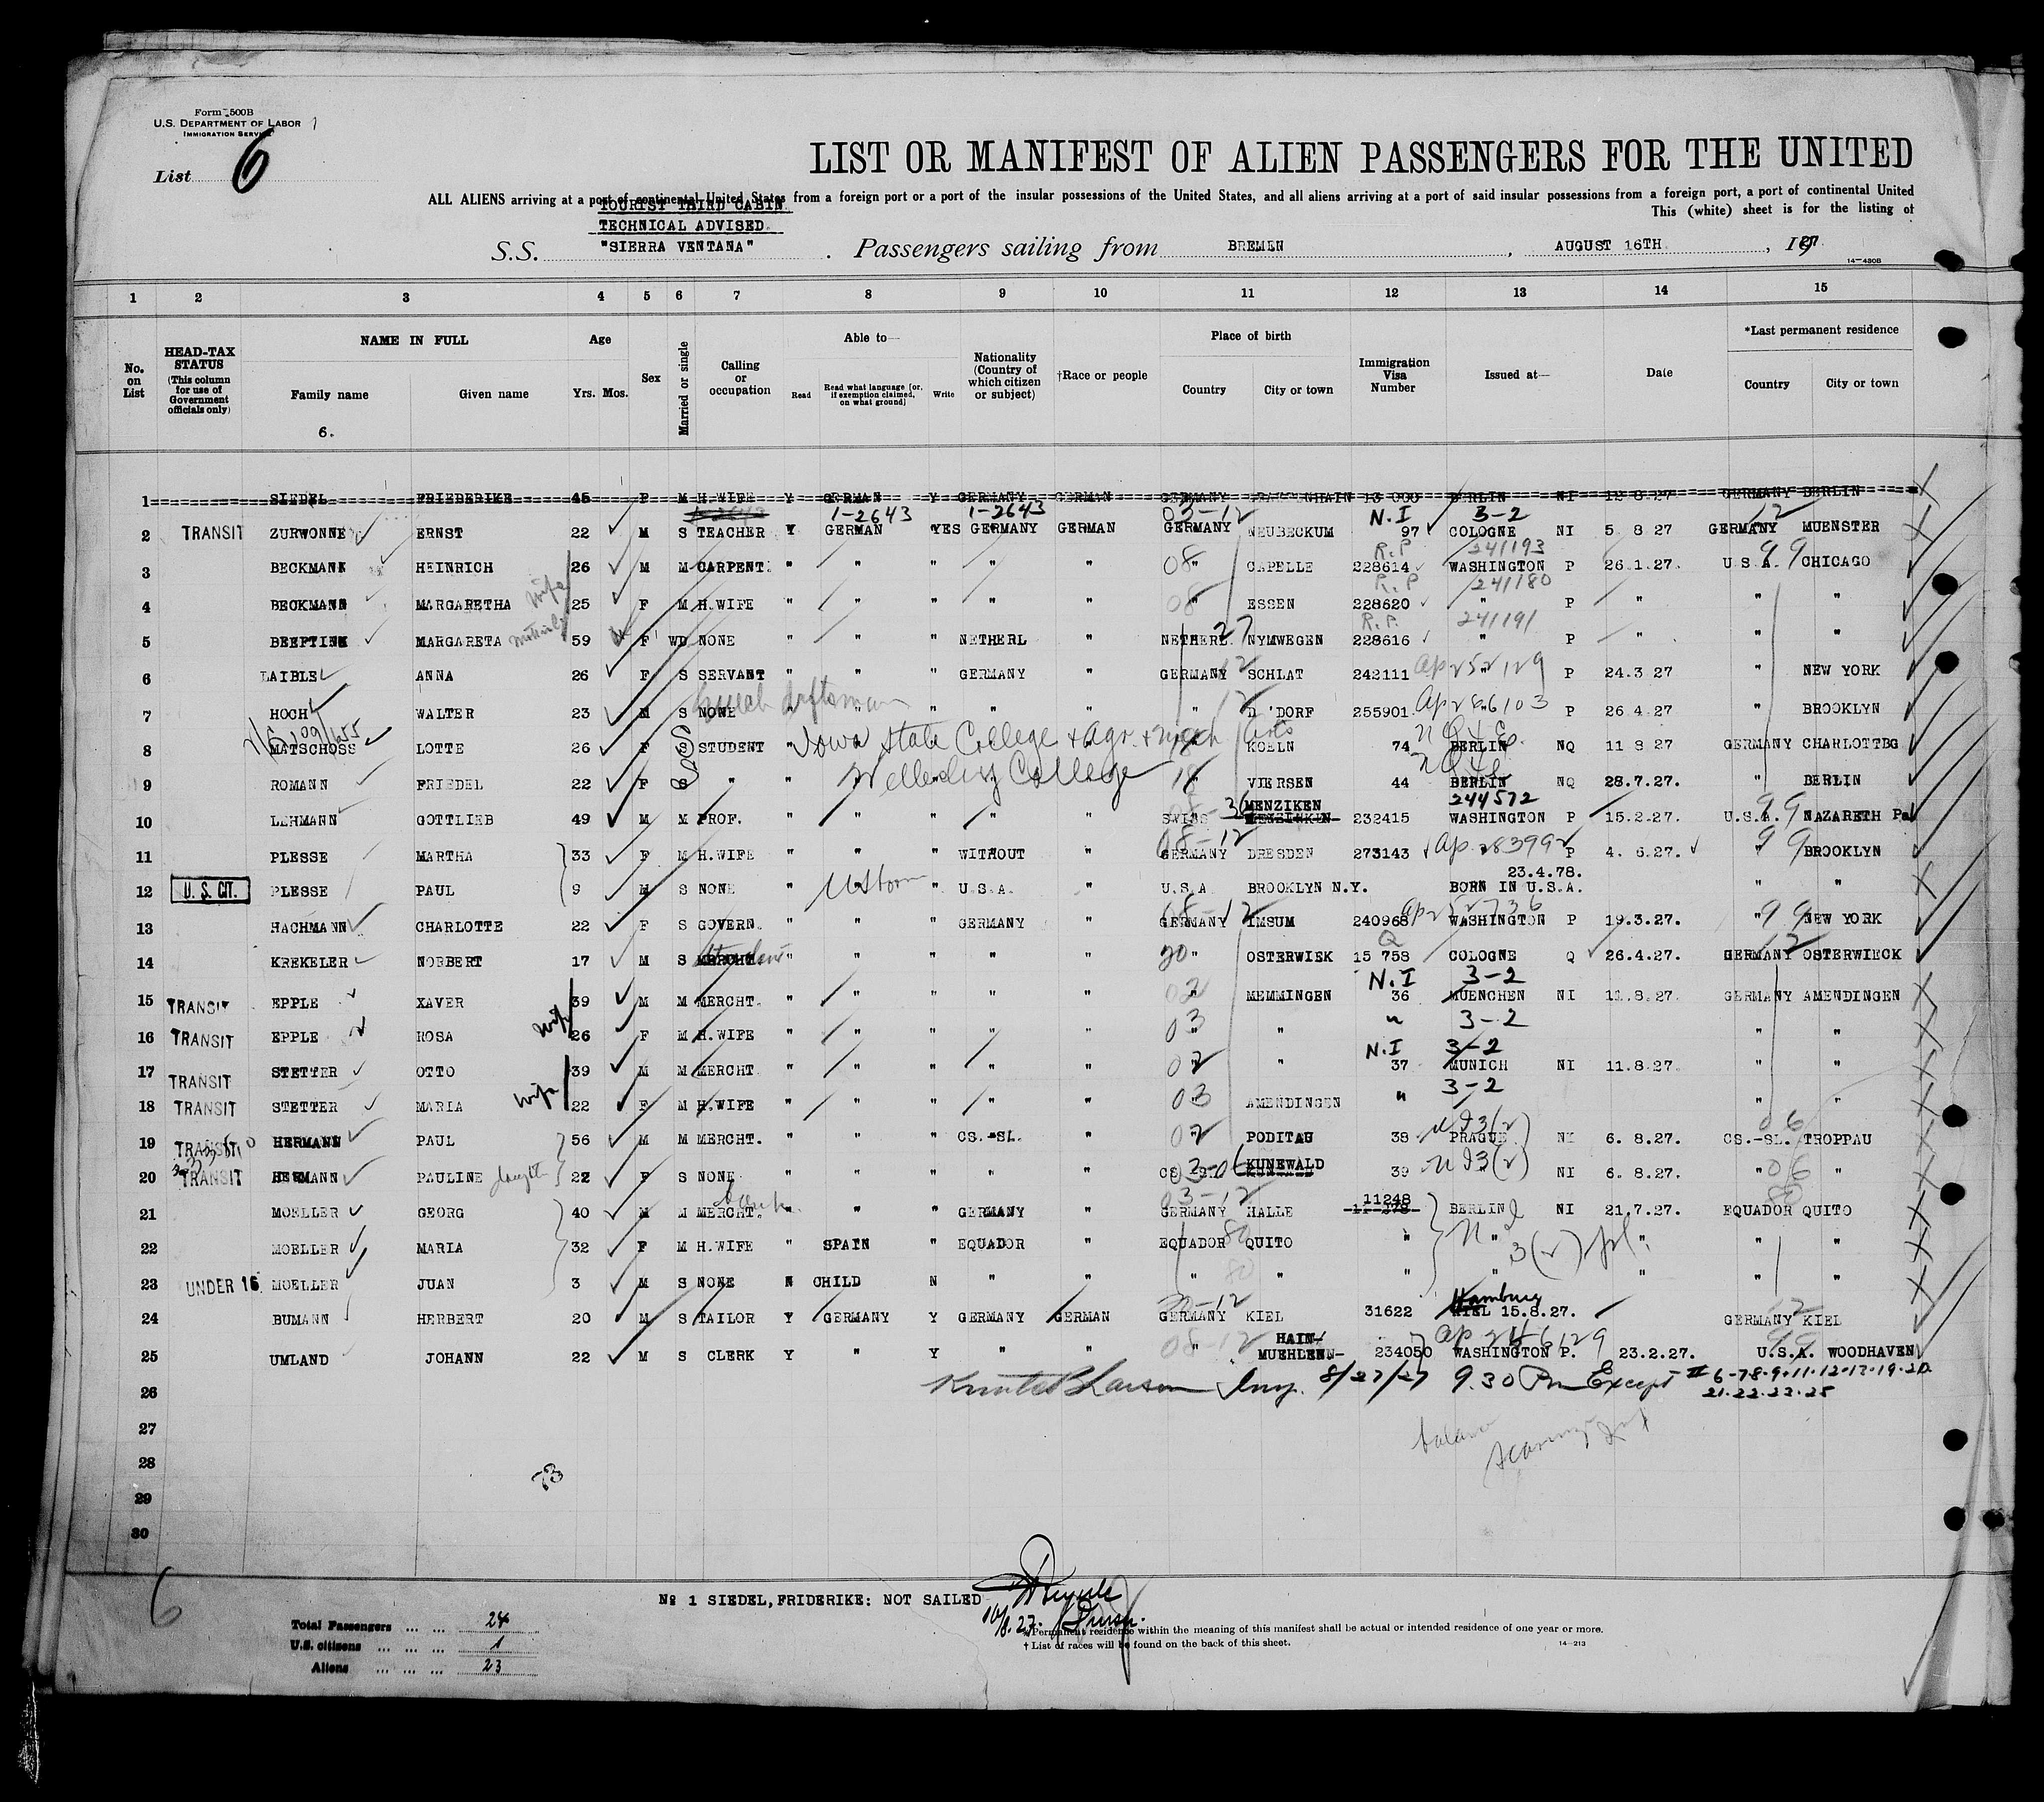 Form 500B
U.S. DEPARTMENT OF LABOR
IMMIGRATION SERVICE
List 6
LIST OR MANIFEST OF ALIEN PASSENGERS FOR THE UNITED
ALL ALIENS arriving at a port of continental United States from a foreign port or a port of the insular possessions of the United States, and all aliens arriving at a port of said insular possessions from a foreign port, a port of continental United
This (white) sheet is for the listing of
TOURIST THIRD CABIN
TECHNICAL ADVISED.
S.S. "SIERRA VENTANA" . Passengers sailing from BREMEN , AUGUST 16TH , 1927
14-430B
1 2 3 4 5 6 7 8 9 10 11 12 13 14 15
No. on List
HEAD-TAX STATUS (This column for use of Government officials only)
NAME IN FULL
Family name
Given name
6.
Age
Yrs. Mos.
Sex
Married or single
Calling or occupation
Able to—
Read
Read what language [or, if exemption claimed, on what ground]
Write
Nationality (Country of which citizen or subject)
†Race or people
Place of birth
Country
City or town
Immigration Visa Number
Issued at—
Date
*Last permanent residence
Country
City or town
1 SIEDEL FRIEDERIKE 45 F M H.WIFE Y GERMAN Y GERMANY GERMAN GERMANY 13 000 BERLIN NI 12 8 27 GERMANY BERLIN
1-2643 1-2643 03-12 N.I 3-2 12
2 TRANSIT ZURWONNE ERNST 22 M S TEACHER Y GERMAN YES GERMANY GERMAN GERMANY NEUBECKUM 97 COLOGNE NI 5 8 27 GERMANY MUENSTER
R.P 241193 99
3 BECKMANN HEINRICH 26 M M CARPENT. " " " " " 08 " CAPELLE 228614 WASHINGTON P 26.1.27. U.S.A. CHICAGO
wife R.P 241180
4 BECKMANN MARGARETHA 25 F M H.WIFE " " " " " 08 " ESSEN 228620 " P " " "
R.P. 241191
5 BEEPTINK MARGARETA 59 F WD NONE " " " NETHERL " NETHERL 27 NYMWEGEN 228616 " P " " "
6 LAIBLE ANNA 26 F S SERVANT " " " GERMANY " GERMANY 12 SCHLAT 242111 " P 24.3 27 " NEW YORK
7 HOCH WALTER 23 M S NONE " " " " " " 12 D'DORF 255901 " P 26.4.27 " BROOKLYN
8 MATSCHOSS LOTTE 26 F S STUDENT " Iowa State College & Agr. & mech Arts KOELN 74 BERLIN NQ 11 8 27 GERMANY CHARLOTTBG
9 ROMANN FRIEDEL 22 F S " " Wellesley College VIERSEN 44 BERLIN NQ 28.7.27. " BERLIN
36 MENZIKEN 244572
10 LEHMANN GOTTLIEB 49 M M PROF. " " " " " SWISS 232415 WASHINGTON P 15.2.27. U.S.A. 99 NAZARETH Pa
08-12
11 PLESSE MARTHA 33 F M H.WIFE " " " WITHOUT " GERMANY DRESDEN 273143 P 4. 6.27. " 99 BROOKLYN
23.4.78.
12 U.S. CIT. PLESSE PAUL 9 M S NONE " US born " U.S.A. " U.S.A BROOKLYN N.Y. BORN IN U.S.A. " "
13 HACHMANN CHARLOTTE 22 F S GOVERN. " " " GERMANY " GERMANY IMSUM 240968 WASHINGTON P 19.3.27. " 99 NEW YORK
Q 12
14 KREKELER NORBERT 17 M S MERCHT. Student " " " " " 20 " OSTERWIEK 15 758 COLOGNE Q 26.4.27. GERMANY OSTERWIECK
N.I 3-2
15 TRANSIT EPPLE XAVER 39 M M MERCHT. " " " " " 02 " MEMMINGEN 36 MUENCHEN NI 11.8.27. GERMANY AMENDINGEN
16 TRANSIT EPPLE ROSA wife 26 F M H.WIFE " " " " " 03 " " " 3-2 " "
N.I 3-2
17 TRANSIT STETTER OTTO 39 M M MERCHT " " " " " 02 " " 37 MUNICH NI 11.8.27. " "
18 TRANSIT STETTER MARIA wife 22 F M H.WIFE " " " " " 03 AMENDINGEN " 3-2 " "
19 TRANSIT HERMANN PAUL 56 M M MERCHT. " " " CS.-SL. " 02 " PODITAU 38 PRAGUE NI 6. 8.27. CS.-SL. 06 TROPPAU
20 TRANSIT HERMANN PAULINE daughter 22 F S NONE " " " " " 03-06 KUNEWALD 39 " NI 6. 8.27. " 06 "
03-12 11248 80
21 MOELLER GEORG 40 M M MERCHT. " " " GERMANY " GERMANY HALLE 11-278 BERLIN NI 21.7.27. EQUADOR QUITO
22 MOELLER MARIA 32 F M H.WIFE " SPAIN " EQUADOR " EQUADOR 80 QUITO " " " " "
23 UNDER 16 MOELLER JUAN 3 M S NONE N CHILD N " " " 80 " " " " " "
Hamburg
24 BUMANN HERBERT 20 M S TAILOR Y GERMANY Y GERMANY GERMAN GERMANY KIEL 31622 KIEL 15.8.27. GERMANY KIEL
08-12 HAIN- 99
25 UMLAND JOHANN 22 M S CLERK Y " Y " " " MUEHLENN- 234050 WASHINGTON P. 23.2.27. U.S.A. WOODHAVEN
26 Insp. 8/27/27 9.30 Pm Except # 6-7-8-9-11-12-13-19-20
21-22-23-25
27
28
29
30
73
6
No 1 SIEDEL,FRIDERIKE: NOT SAILED
16/8.27.
Total Passengers ... ... 24
U.S. citizens ... ... ... 1
Aliens ... ... ... 23
* Permanent residence within the meaning of this manifest shall be actual or intended residence of one year or more.
† List of races will be found on the back of this sheet.
14-213